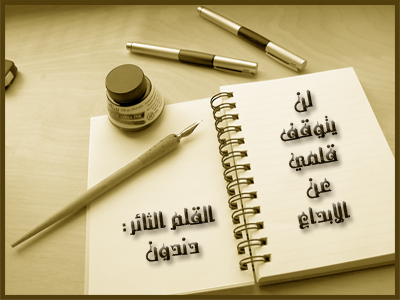 لن
يتوقف
قلمي
عن
الابداع
القلم الثائر :
دندون